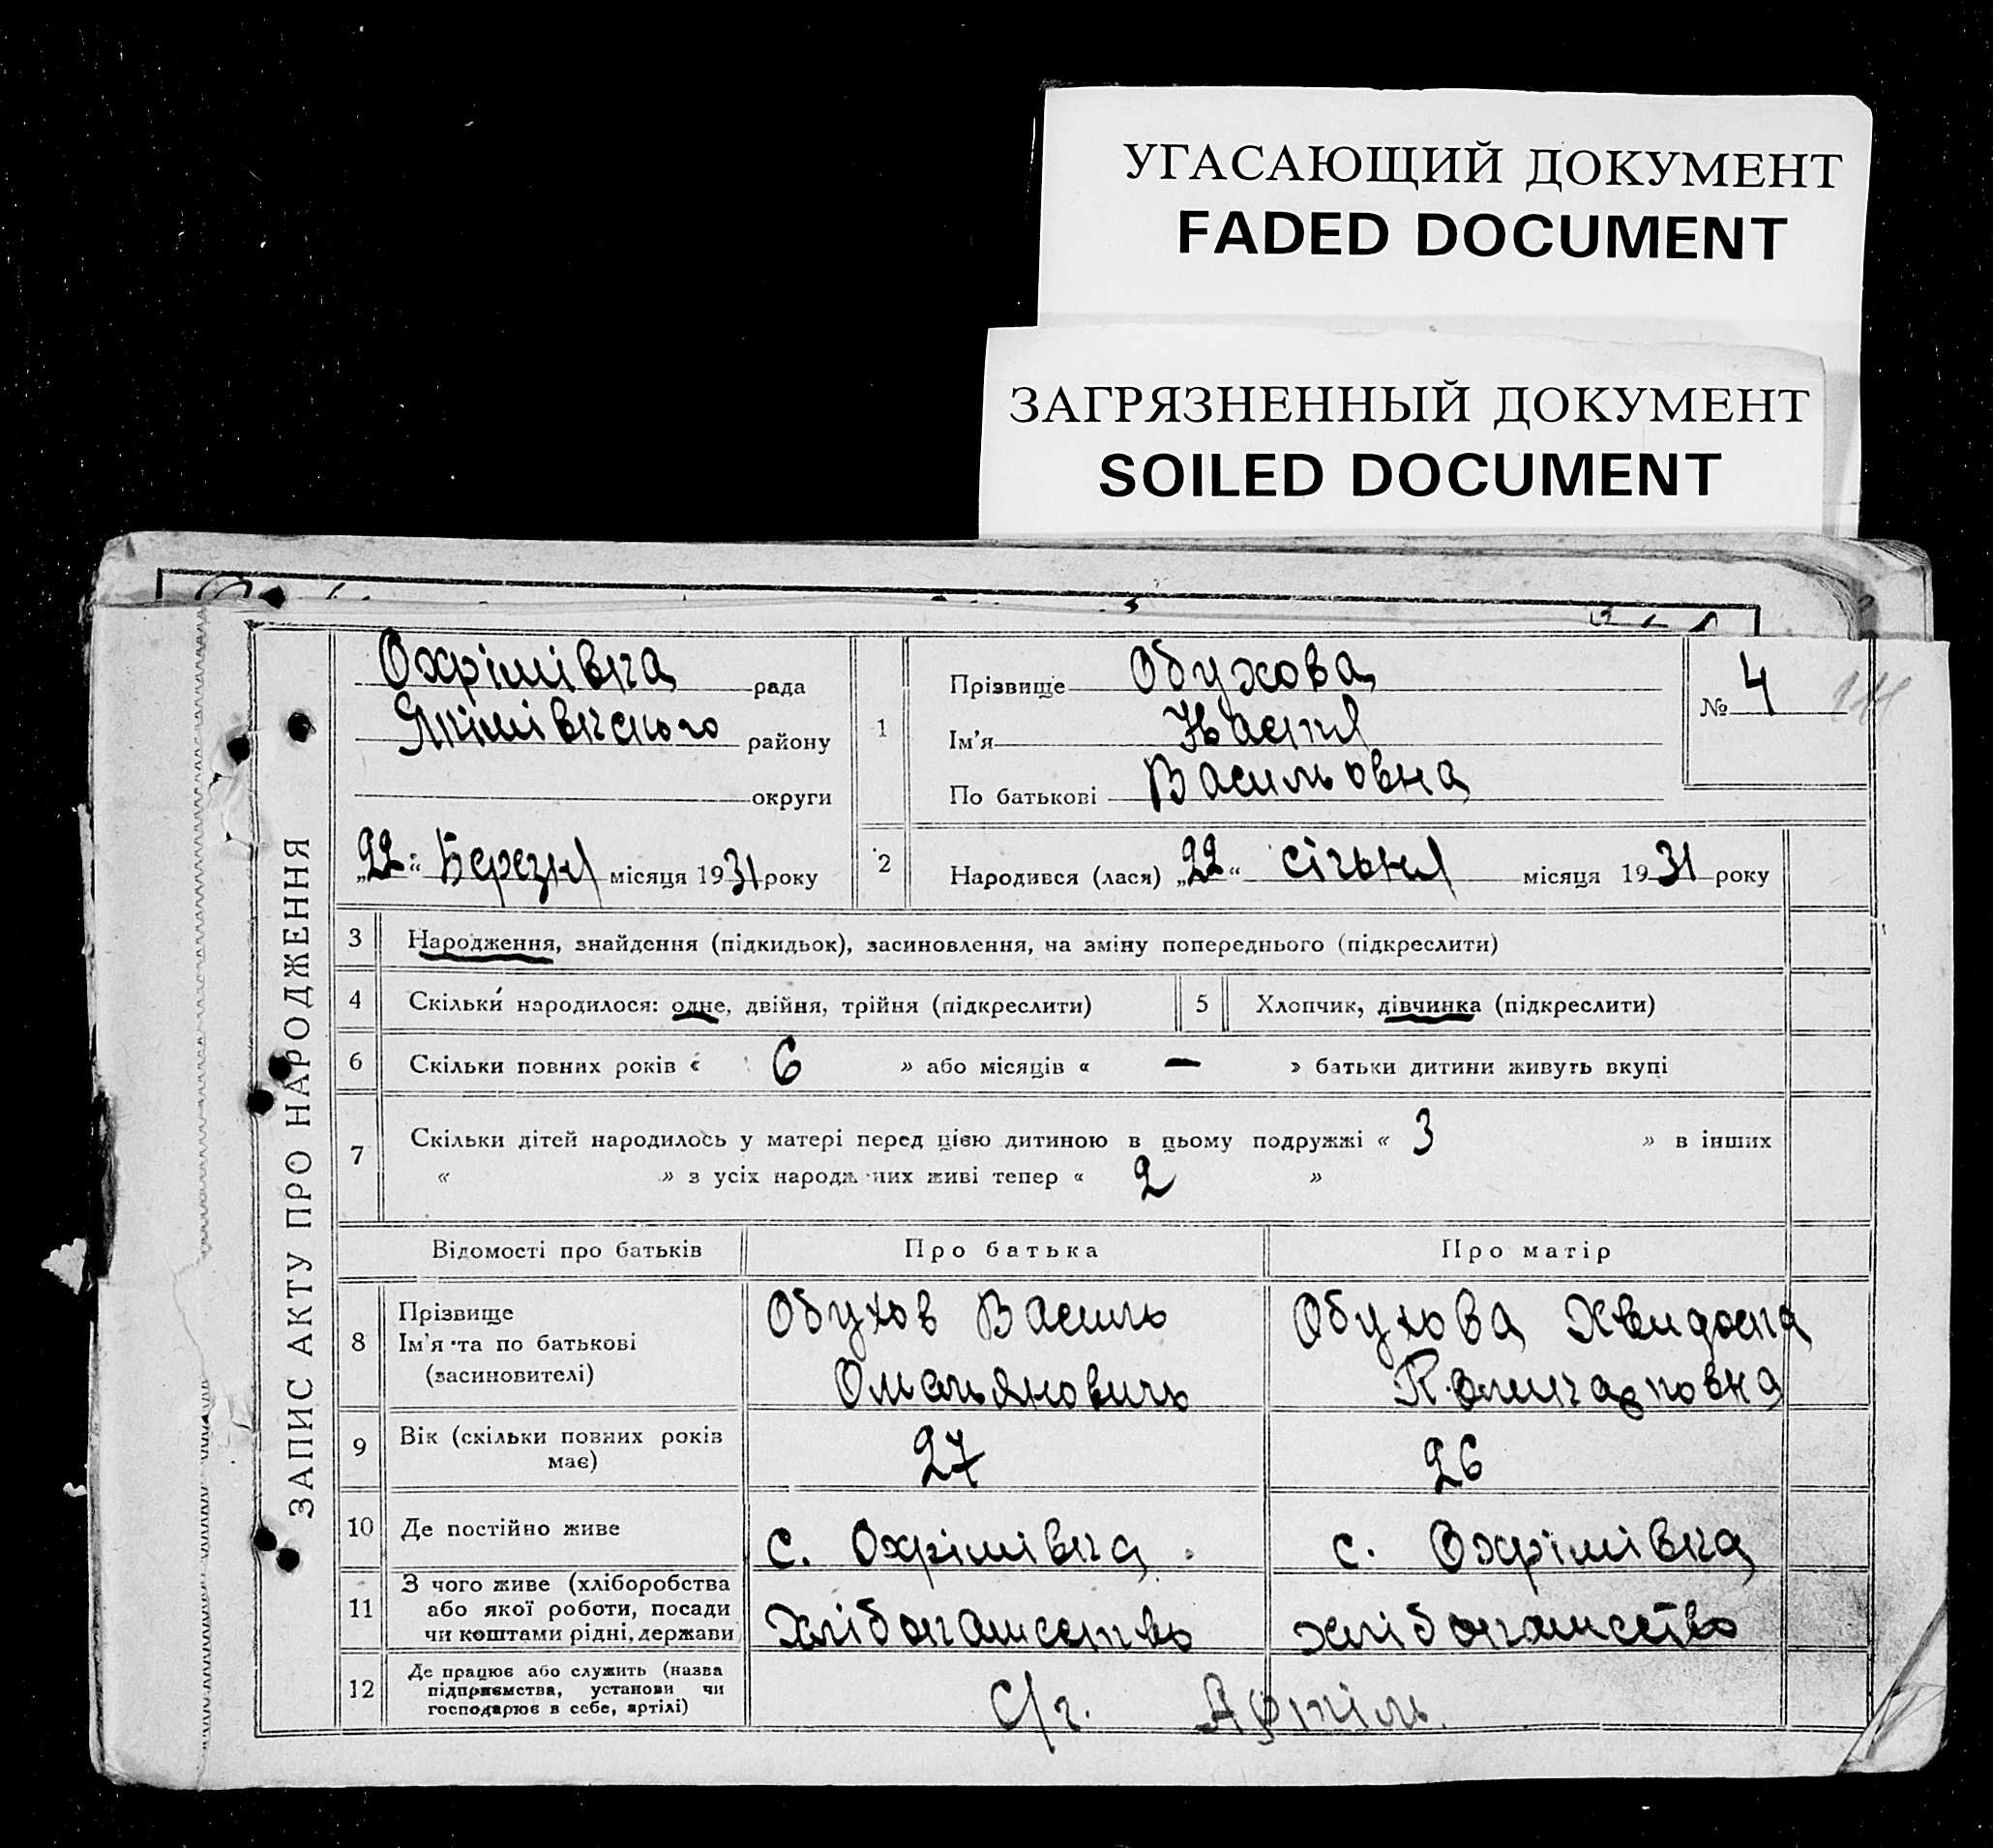 УГАСАЮЩИЙ ДОКУМЕНТ
FADED DOCUMENT
ЗАГРЯЗНЕННЫЙ ДОКУМЕНТ
SOILED DOCUMENT
ЗАПИС АКТУ ПРО НАРОДЖЕННЯ
Охрімівка рада
Якімівського району
округи
„22“ Березня місяця 1931 року
1
Прізвище Обухова
Ім'я Настя
По батькові Васильовна
№ 4
2 Народився (лася) „22“ січьня місяця 1931 року
3 Народження, знайдення (підкидьок), засиновлення, на зміну попереднього (підкреслити)
4 Скільки народилося: одне, двійня, трійня (підкреслити) 5 Хлопчик, дівчинка (підкреслити)
6 Скільки повних років « 6 » або місяців « — » батьки дитини живуть вкупі
7 Скільки дітей народилось у матері перед цією дитиною в цьому подружжі « 3 » в інших
« » з усіх народж них живі тепер « 2 »
Відомості про батьків Про батька Про матір
8 Прізвище
Ім'я та по батькові
(засиновителі)
Обухов Василь
Омельянович
Обухова Хведоста
9 Вік (скільки повних років
має)
27 26
10 Де постійно живе с. Охрімівка с. Охрімівка
11 З чого живе (хліборобства
або якої роботи, посади
чи коштами рідні, держави
12 Де працює або служить (назва
підприємства, установи чи
господарює в себе, артілі)
С/г. Артіль